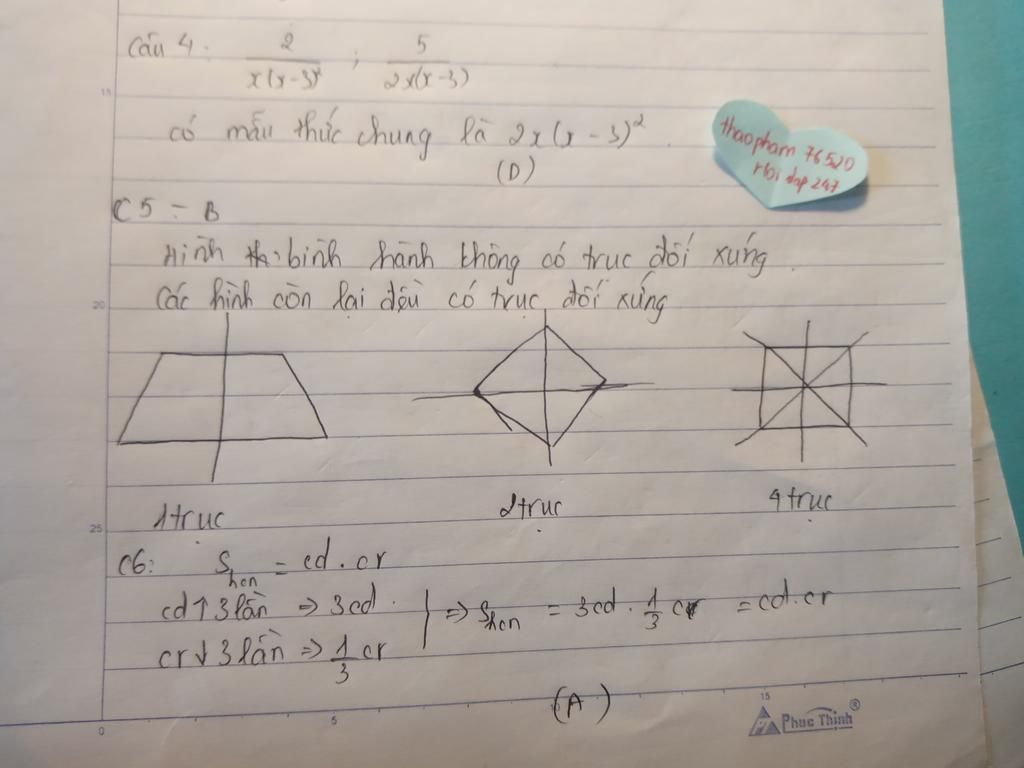 Câu 4. 2/x(x-3)² ; 5/2x(x-3)
có mẫu thức chung là 2x(x-3)².
(D)
thaopham 76520
Hỏi đáp 247
C5 - B
Hình bình hành không có trục đối xứng.
Các hình còn lại đều có trục đối xứng
1 trục
2 trục
4 trục
C6: Shcn = cd . cr
cd ↑ 3 lần => 3cd.
cr ↓ 3 lần => 1/3 cr
=> Shcn = 3cd . 1/3 cr = cd.cr
(A)
Phuc Thinh®
15
20
25
0
5
15